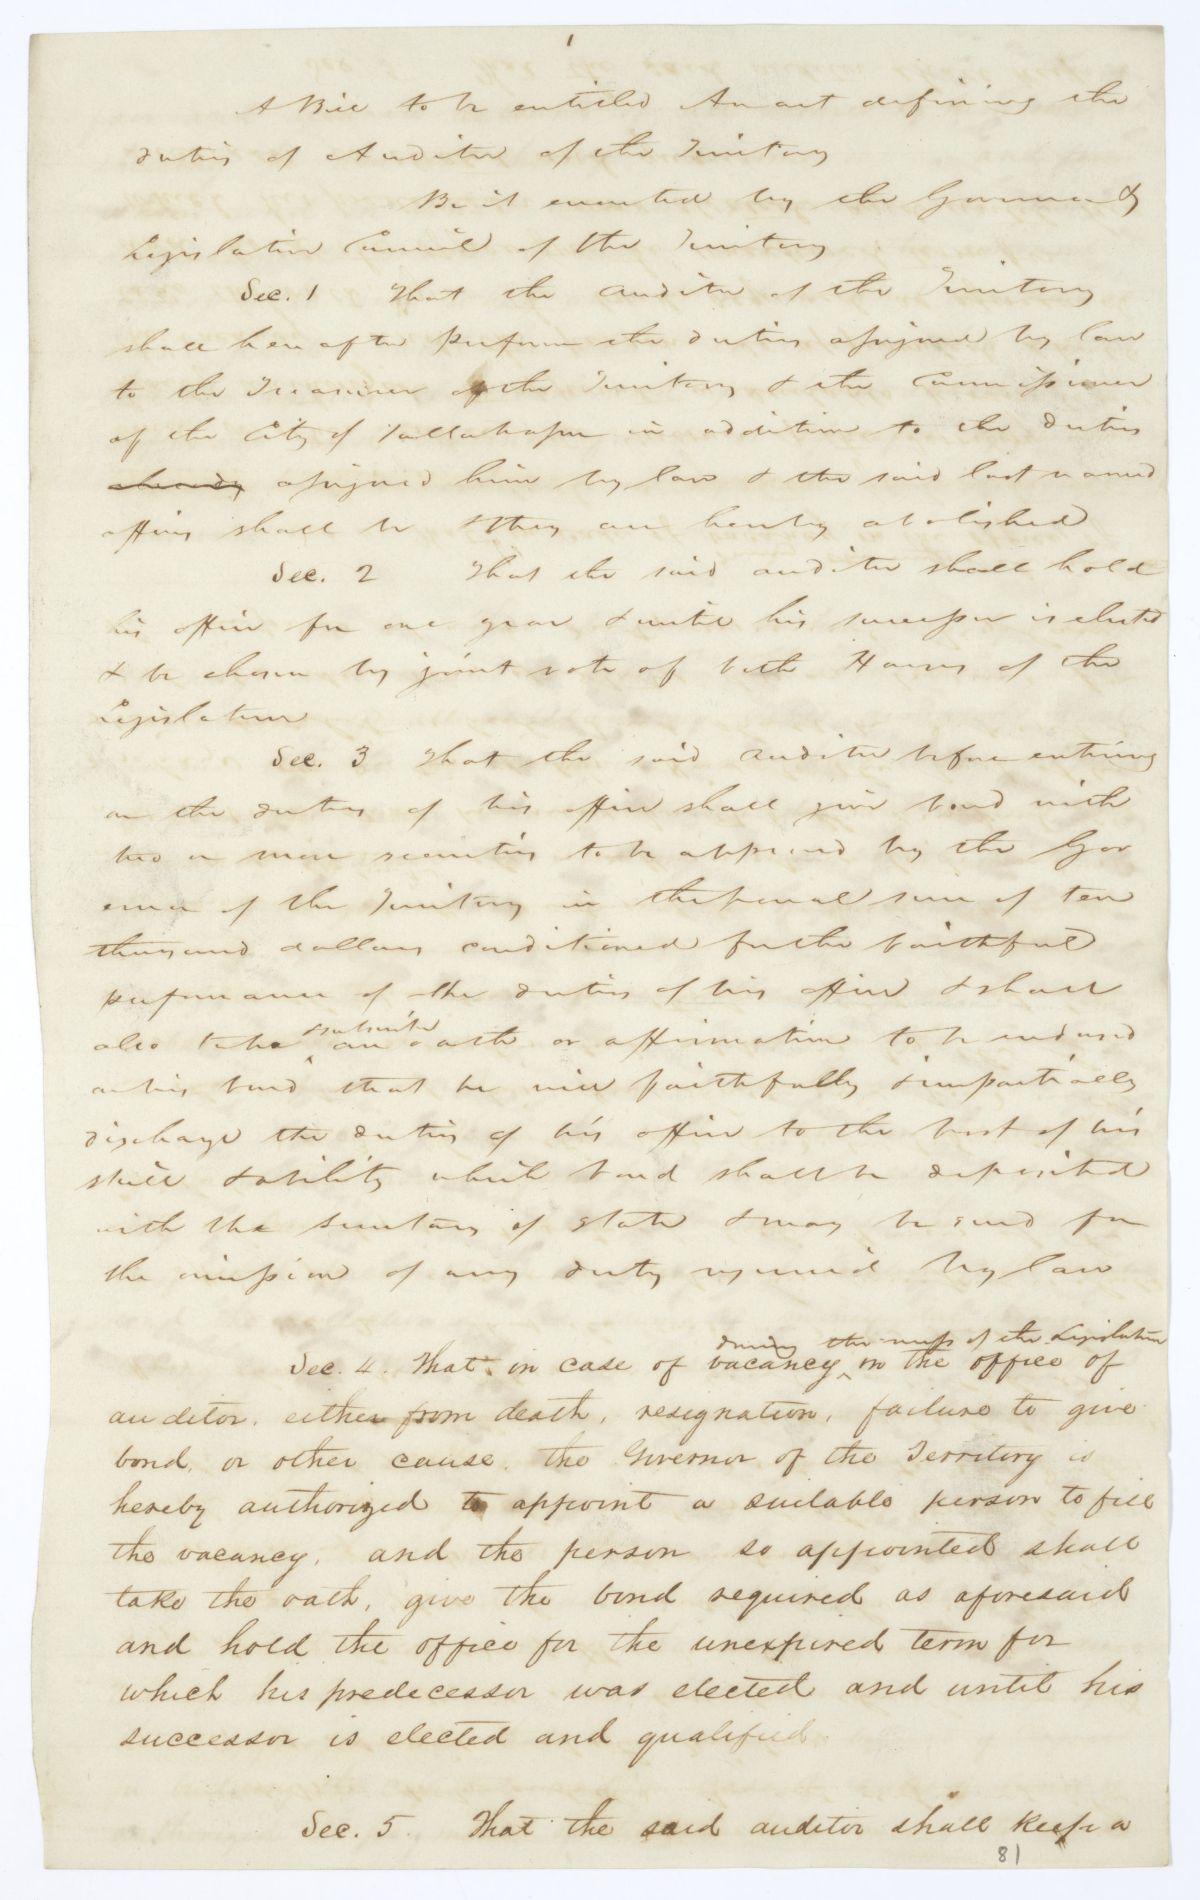 1
A Bill to be entitled An act defining the
duties of Auditor of the Territory
Be it enacted by the Governor &
Legislative Council of the Territory
Sec. 1 That the auditor of the Territory
shall here after perform the duties assigned by law
to the Treasurer of the Territory & the Commissioner
of the City of Tallahassee in addition to the duties
already assigned him by law & the said last named
offices shall be & they are hereby abolished
Sec. 2 That the said auditor shall hold
his office for one year & until his successor is elected
& be chosen by joint vote of both Houses of the
Legislature
Sec. 3 That the said auditor before entering
on the duties of his office shall give bond with
two or more securities to be approved by the Gov
ernor of the Territory in the penal sum of ten
thousand dollars conditioned for the faithful
performance of the duties of his office & shall
also take & subscribe an oath or affirmation to be endorsed
on his bond that he will faithfully & impartially
discharge the duties of his office to the best of his
skill & ability which bond shall be deposited
with the Secretary of State & may be sued for
the omission of any duty required by law
during the recess of the Legislature
Sec. 4. That in case of vacancy in the office of
auditor, either from death, resignation, failure to give
bond, or other cause, the Governor of the Territory is
hereby authorized to appoint a suitable person to fill
the vacancy, and the person so appointed shall
take the oath, give the bond required as aforesaid
and hold the office for the unexpired term for
which his predecessor was elected and until his
successor is elected and qualified.
Sec. 5. That the said auditor shall keep a
81